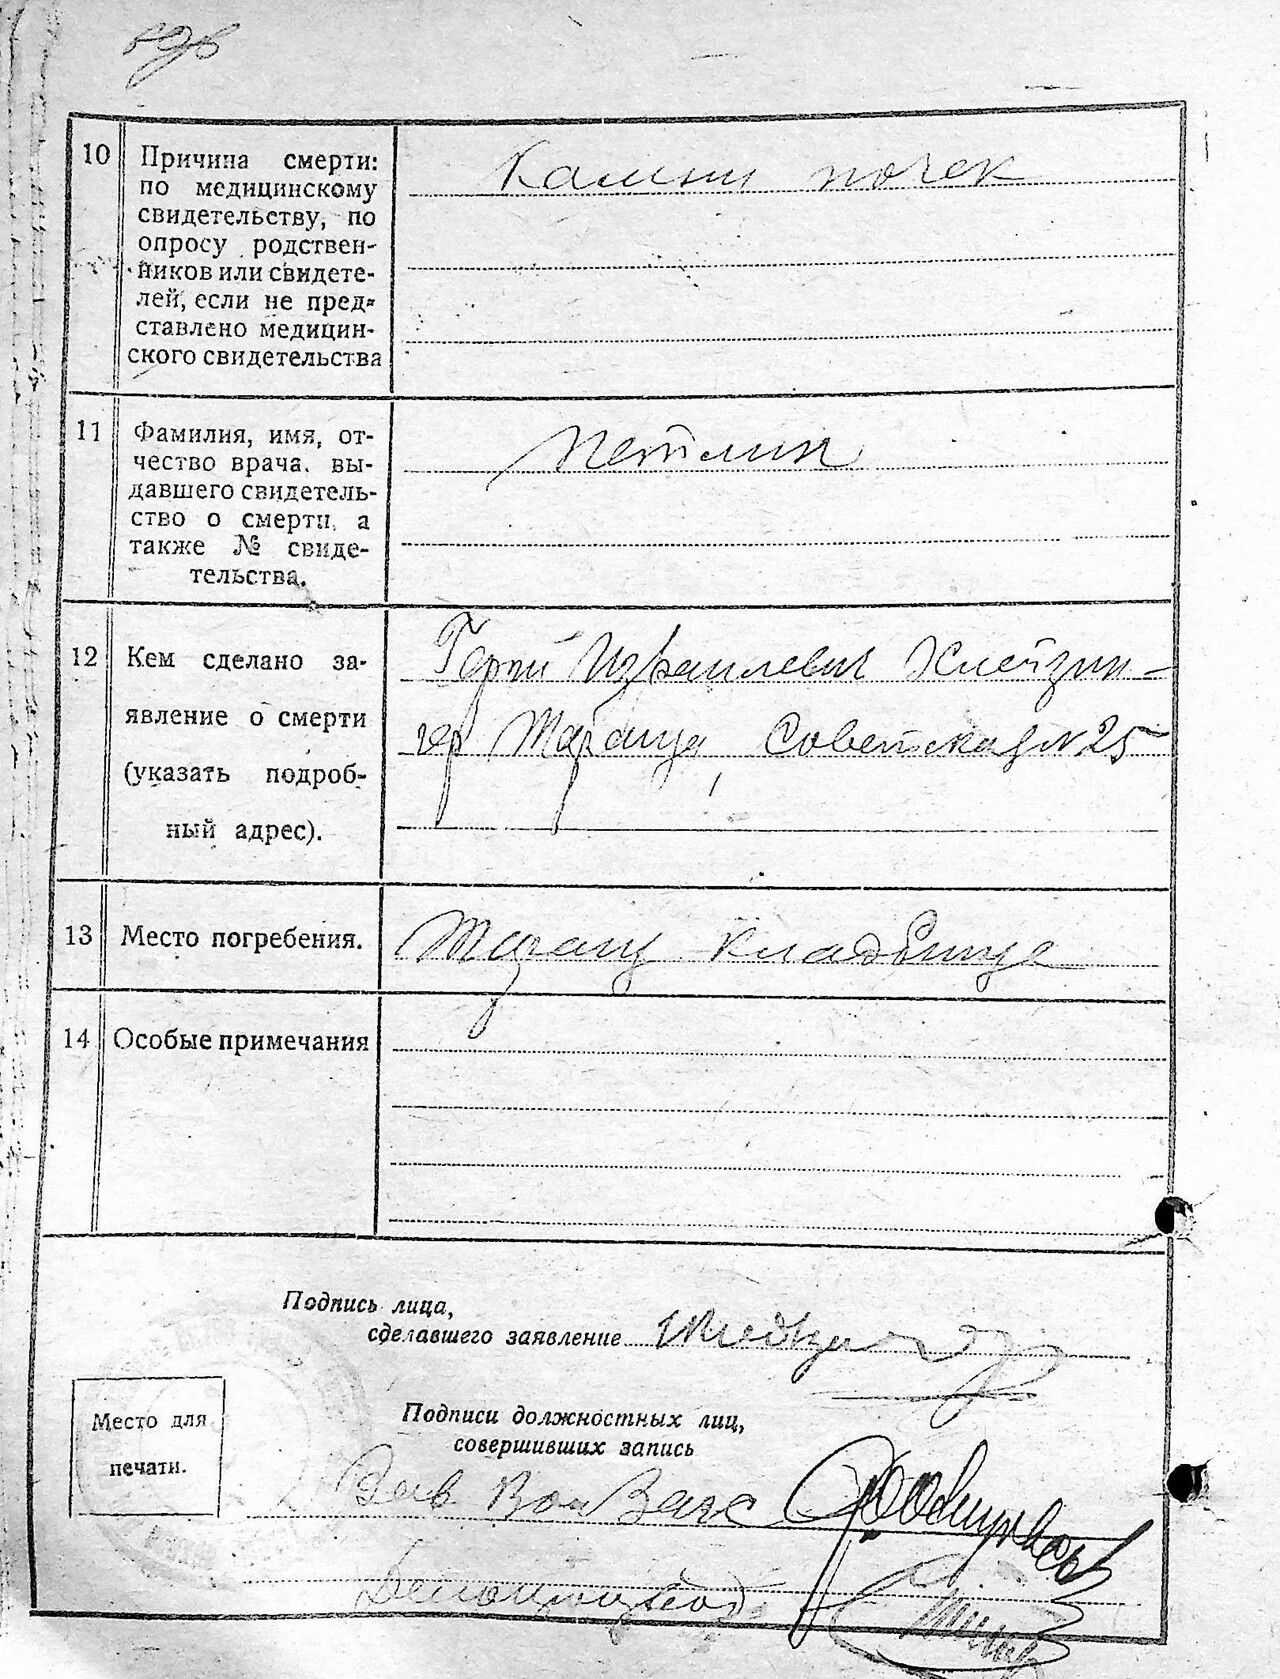 10 Причина смерти:
по медицинскому
свидетельству, по
опросу родствен-
ников или свидете-
лей, если не пред-
ставлено медицин-
ского свидетельства
Камни почек
11 Фамилия, имя, от-
чество врача, вы-
давшего свидетель-
ство о смерти, а
также № свиде-
тельства.
Петлин
12 Кем сделано за-
явление о смерти
(указать подроб-
ный адрес).
Израилевич Клейзин-
гер Тараща, Советская № 25
13 Место погребения.
Таращ кладбище
14 Особые примечания
Подпись лица,
сделавшего заявление
Место для
печати.
Подписи должностных лиц,
совершивших запись
Зав Загс